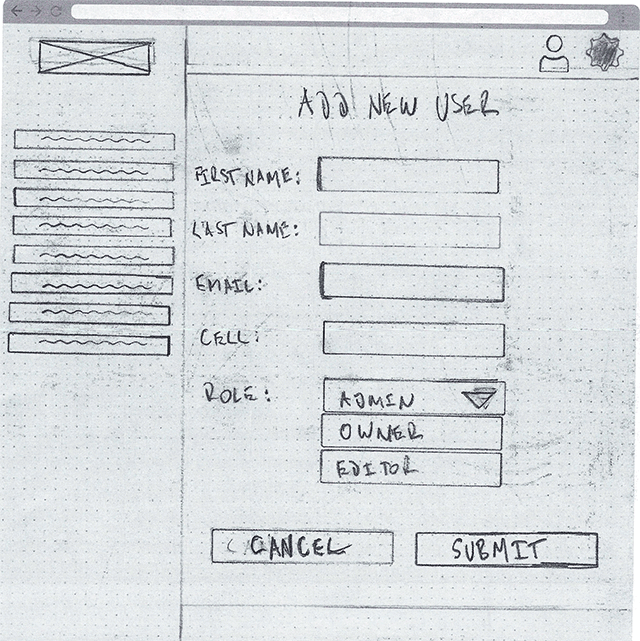 ADD NEW USER
FIRST NAME:
LAST NAME:
EMAIL:
CELL:
ROLE:
ADMIN
OWNER
EDITOR
CANCEL
SUBMIT